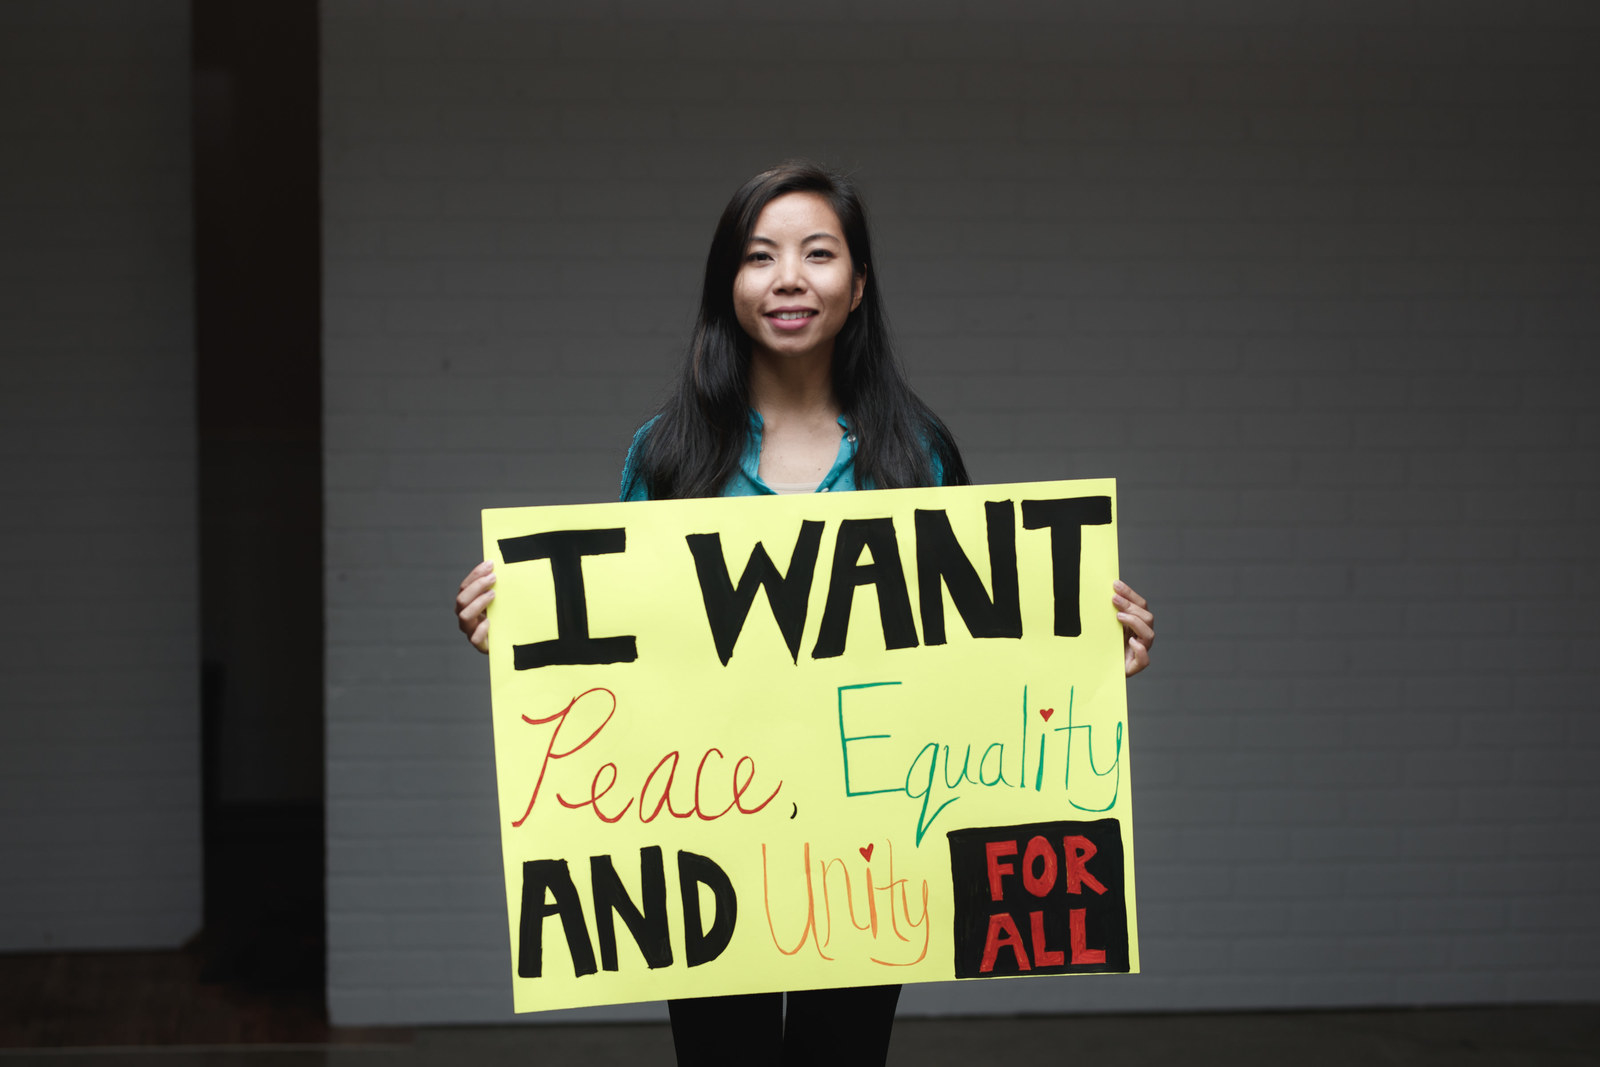 I WANT
Peace, Equality
AND Unity FOR
ALL